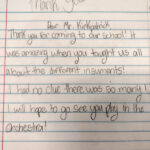 Thank you
Dear Mr. Kirkpatrick,
Thank you for coming to our school! It
was amazing when you taught us all
about the different insuments!
I had no clue there was so many!
I will hope to go see you play in the
orchestra!